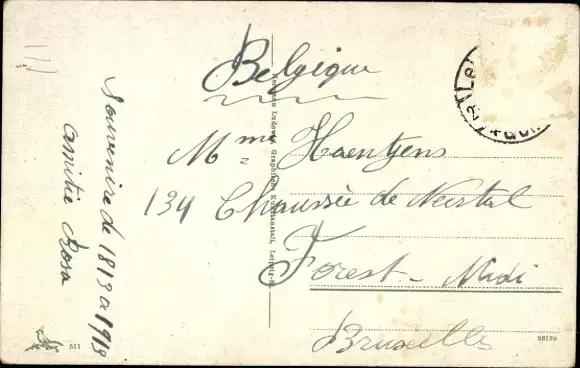 Belgique
Mme Haentjens
134 Chaussée de Neerstal
Forest - Midi
Bruxelles
Souvenire de 1813 a 1913
amitie Rosa
Ludewig, Graphische Kunstanstalt, Leipzig
511
98139